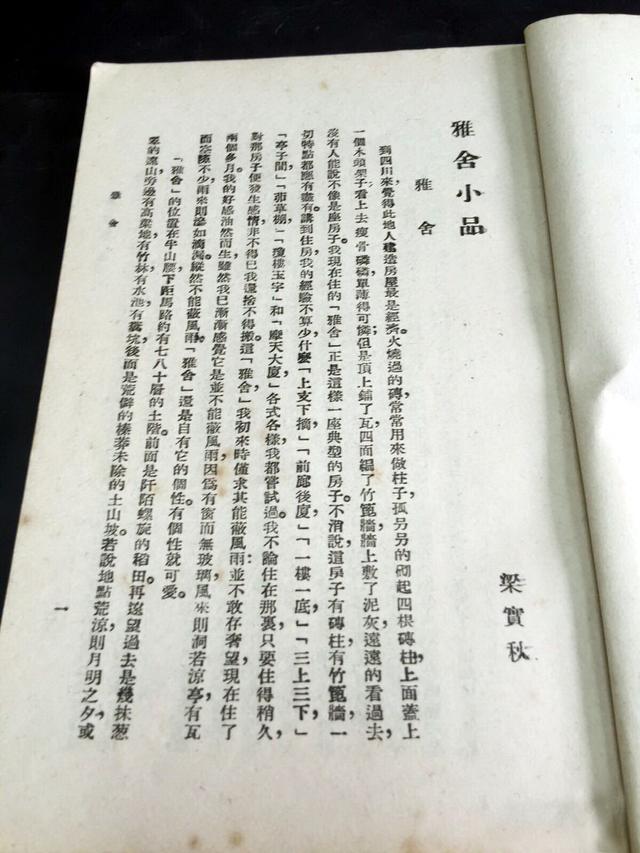 雅舍小品
梁實秋
雅舍
到四川來覺得此地人建造房屋最是經濟。火燒過的磚常常用來做柱子，孤另另的砌起四根磚柱，上面蓋上
一個木頭架子看上去瘦骨磷磷單薄得可憐；但是頂上鋪了瓦四面編了竹篦牆牆上敷了泥灰遠遠的看過去，
沒有人能說不像是座房子。我現在住的「雅舍」正是這樣一座典型的房子。不消說，這房子有磚柱有竹篦牆一
切特點都應有盡有。講到住房我的經驗不算少什麽「上支下摘」，「前廊後廈」，「一樓一底」，「三上三下」，
「亭子間」，「茆草棚」，「瓊樓玉宇」和「摩天大廈」各式各樣我都嘗試過。我不論住在那裏只要住得稍久，
對那房子便發生感情非不得已我還捨不得搬。這「雅舍」我初來時僅求其能蔽風雨並不敢存奢望現在住了
兩個多月我的好感油然而生雖然我已漸漸感覺它是並不能蔽風雨因爲有窗而無玻璃風來則洞若涼亭有瓦
而空隙不少雨來則滲如滴漏。縱然不能蔽風雨。「雅舍」還是自有它的個性。有個性就可愛。
「雅舍」的位置在半山腰下距馬路約有七八十層的土階。前面是阡陌螺旋的稻田。再遠望過去是幾抹葱
翠的遠山旁邊有高粱地有竹林有水池有糞坑後面是荒僻的榛莽未除的土山坡。若說地點荒涼則月明之夕或
雅舍
一